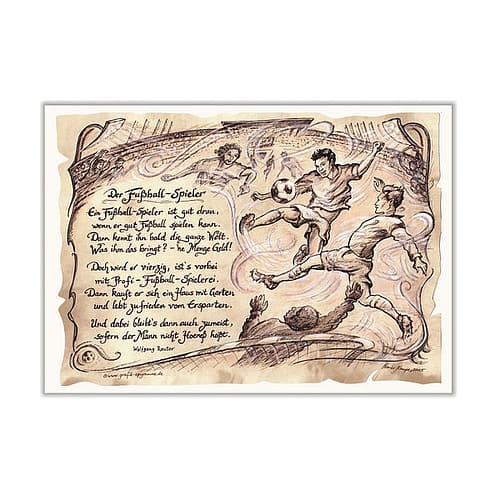 Der Fußball-Spieler
Ein Fußball-Spieler ist gut dran,
wenn er gut Fußball spielen kann.
Dann kennt ihn bald die ganze Welt.
Was ihm das bringt? - ne Menge Geld!
Doch wird er vierzig, ist's vorbei
mit Profi-Fußball-Spielerei.
Dann kauft er sich ein Haus mit Garten
und lebt zufrieden vom Ersparten.
Und dabei bleibt's dann auch zumeist,
sofern der Mann nicht Hoeneß heißt.
Wolfgang Reuter